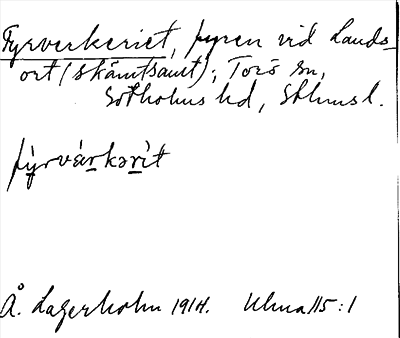 Fyrverkeriet, fyren vid Lands-
ort (skämtsamt); Torö sn,
Sotholms hd, Sthms l.
fy̱rvár̠kər̠ìt
Å. Lagerholm 1914. Ulma 115:1